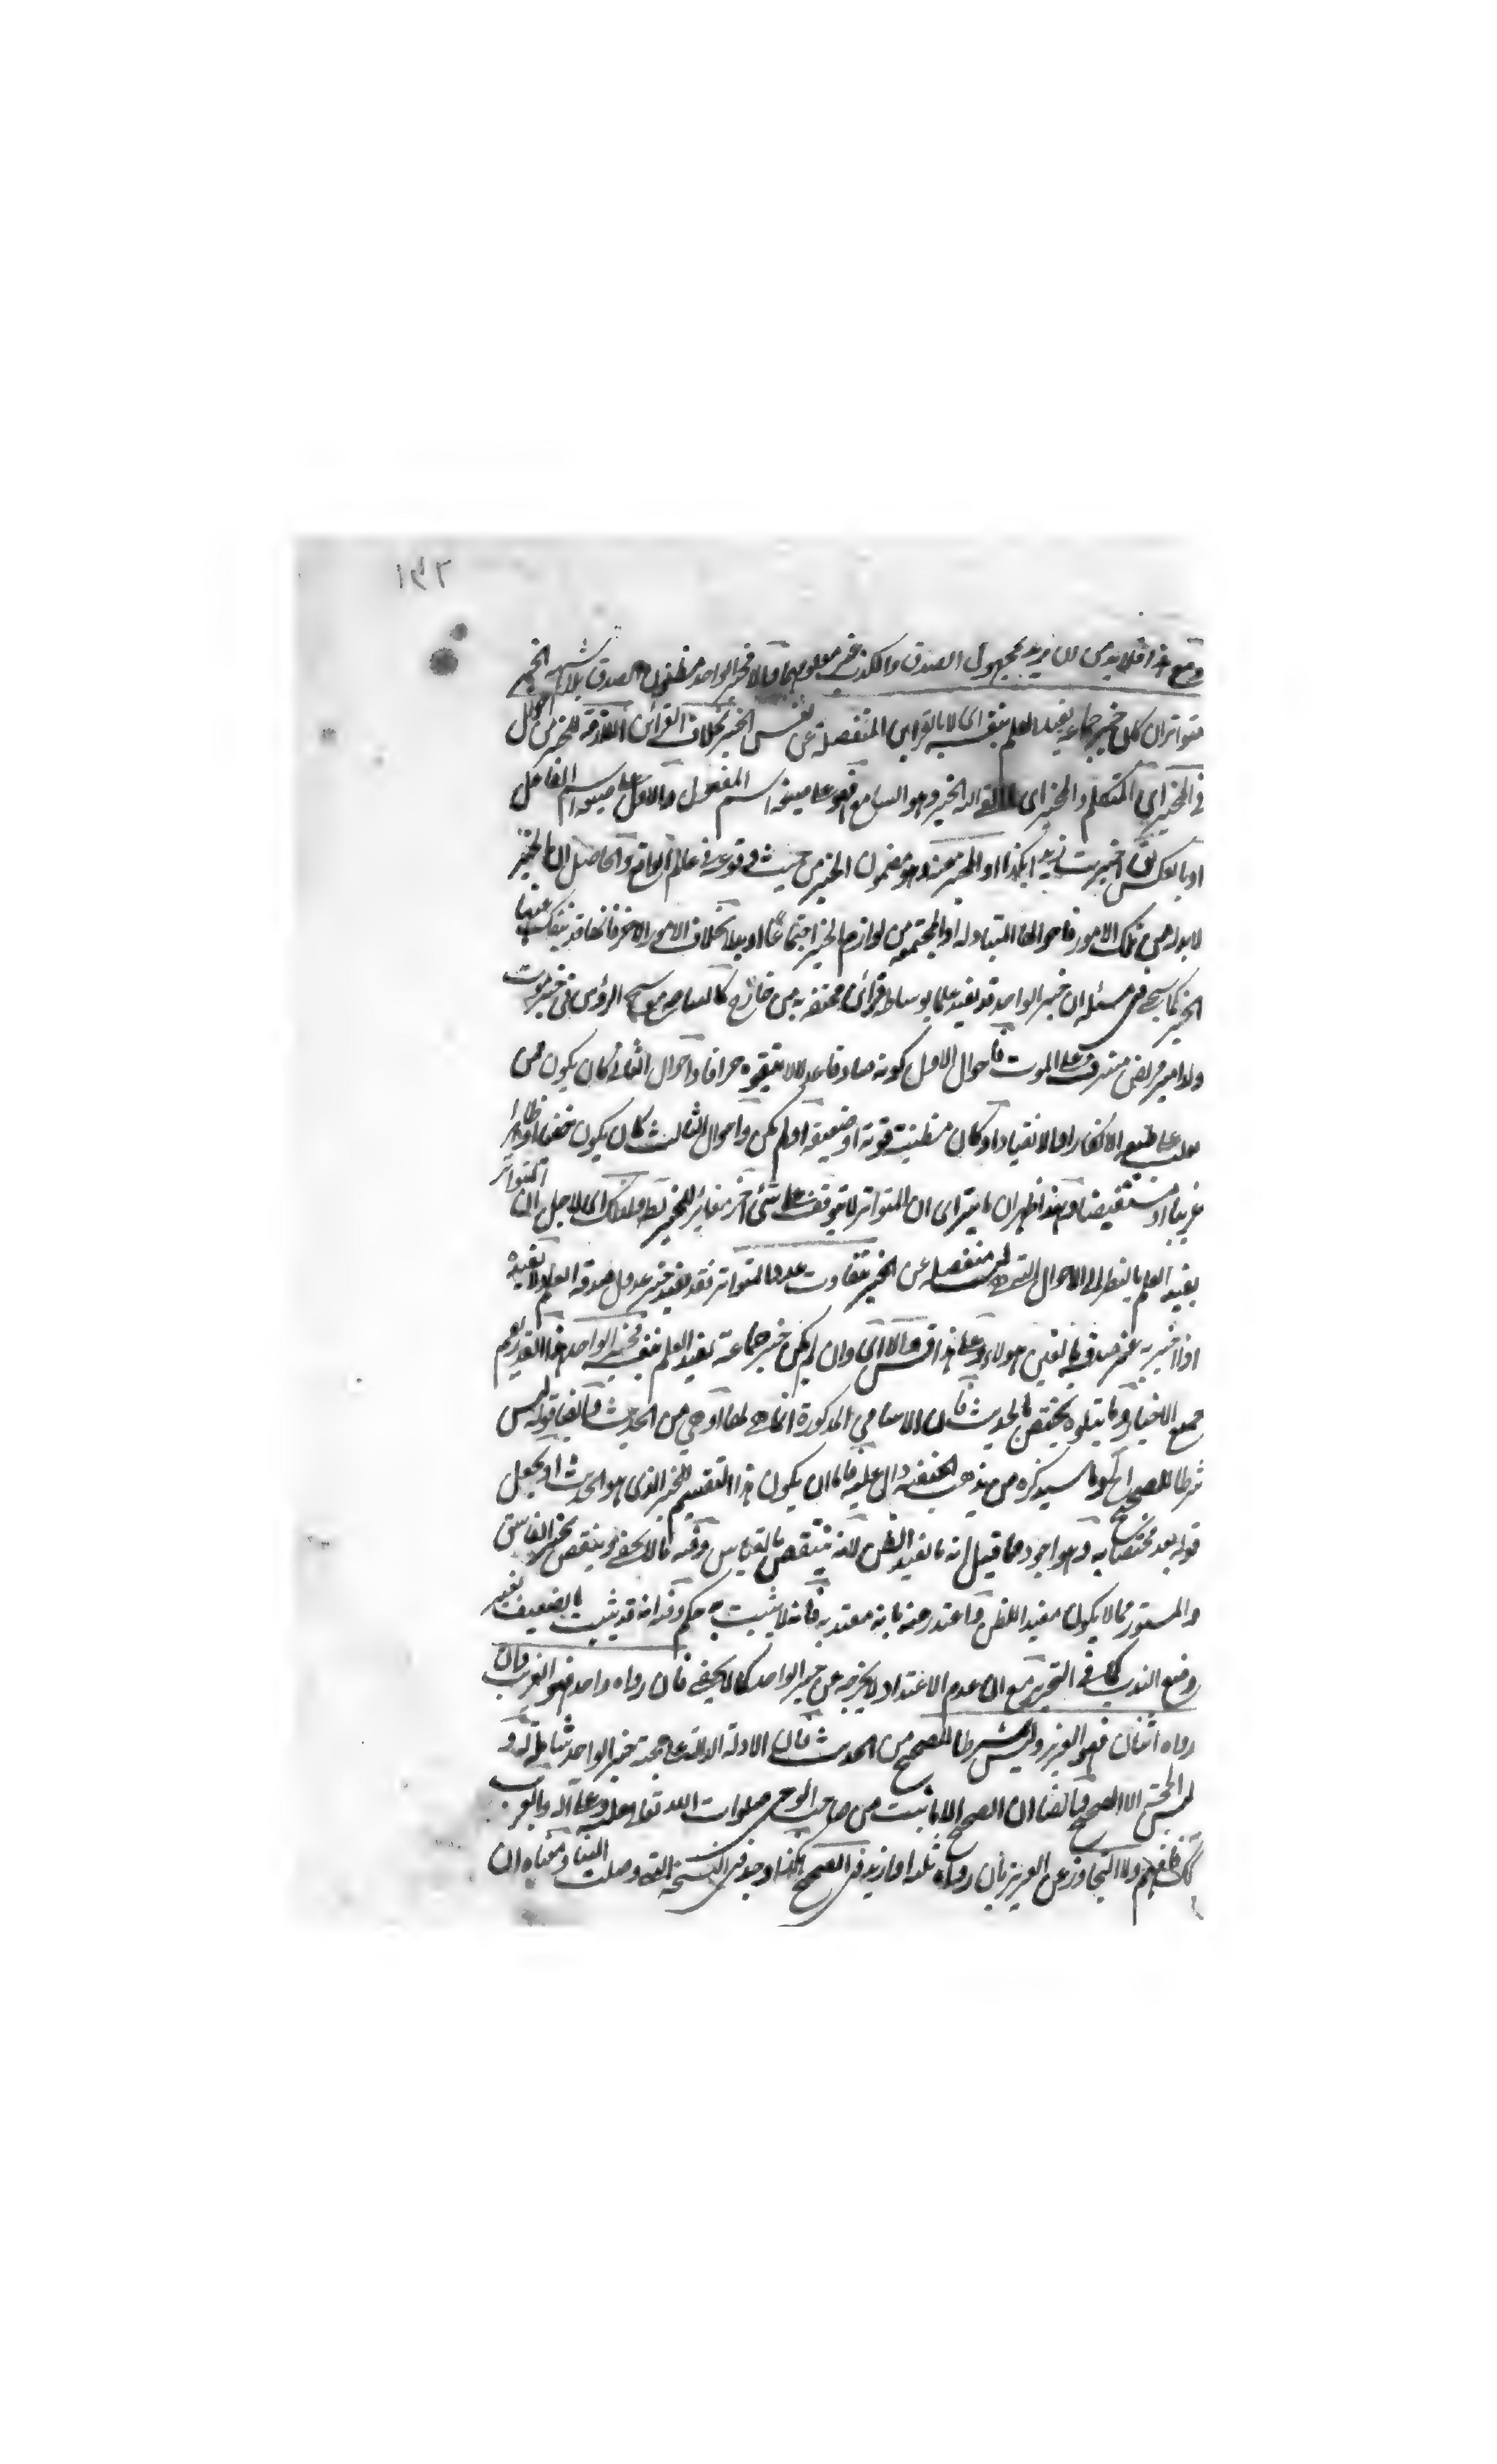 ١٤٢
ومع هذا فلابد من ان يزيد مجهول الصدق والكذب غير معلومهما والا فخبر الواحد مظنون الصدق بلا شبهة الخبر
متواتر ان كان خبر جماعة يفيد العلم بنفسه اى لا بالقراين المنفصلة عن نفس الخبر بخلاف القرائن اللازمة للخبر من احوال
فى المخبر اى المتكلم والمخبر اى القاء اليه الخبر وهو السامع فهو على صيغة اسم المفعول والاول على صيغة اسم الفاعل
او بالعكس يق اخبرت زيدا بكذا او المخبر عنه وهو مضمون الخبر من حيث وقوعه فى عالم الواقع والحاصل ان الخبر
لابد له من تلك الامور فاحوالها المتبادلة او المجتمعة من لوازم الخبر اجتماعا او بدلا بخلاف الامور الاخر فانها قد ينفك عنها
الخبر كما سيجئ فى مسئلة ان خبر الواحد قد يفيد علما بوساطة قرائن محتفة به من خارج الرؤس فى خبر موت
ولد امير مريض مشرف على الموت فاحوال الاول كونه صادقا عدلا واحوال الثانى كان يكون ممن
على طبعه الانكار او الانقياد او كان قوية او ضعيفة او لم يكن واحوال الثالث كان يكون خفيا او ظاهرا
غريبا او مستفيضا وبهذا ظهر ان المتواتر لا يتوقف على شئ اخر مغاير للخبر ولذلك اى لاجل ان المتواتر
يفيد العلم بالنظر الى الاحوال التى ليست منفصلة عن الخبر يتفاوت عدد المتواتر فقد يفيد خبر عدول صدقة العلم ولا يفيده
اذا اخبر به غير هؤلاء وعلى هذا قس والا اى وان لم يكن خبر جماعة يفيد العلم بنفسه فخبر الواحد هذا القدر يعم
جميع الاخبار وما يتلوه يختص بالحديث فان الاسامي المذكورة انما هى من الحديث وايضا قوله ليس
شرطا للصحيح الخ وما سيذكره من مذهب الحنفية دال عليه فاما ان يكون هذا التقسيم للخبر الذى هو الحديث او يجعل
قوله بعد مختصا به وهو اجود مما قيل انه ما يفيد الظن لانه ينتقض بالقياس وفيه ما لا يخفى وينقض بخبر الفاسق
والمستور مما لا يكون مفيد الظن واعتذر عنه بانه معتد به فانه لا يثبت به حكم وفيه انه قد يثبت بالضعيف بغير
وضع الندب كما فى التحرير مع ان عدم الاعتداد لا يخرجه عن خبر الواحد كما لا يخفى فان رواه واحد فهو الغريب وان
رواه اثنان فهو العزيز وليس شرطا للصحيح من الحديث فان الادلة الدالة على حجية خبر الواحد شاملة له و
ليس الحجة الا الصحيح وايضا ان الصحيح الا ما ثبت من صاحب الوحى صلوات الله تعالى عليه وعلى آله والغريب
ولا التجاوز عن العزيز بان رواه ثلثة او ازيد فى الصحيح هكذا وجد فى النسخة التى وصلت الينا ومعناه ان